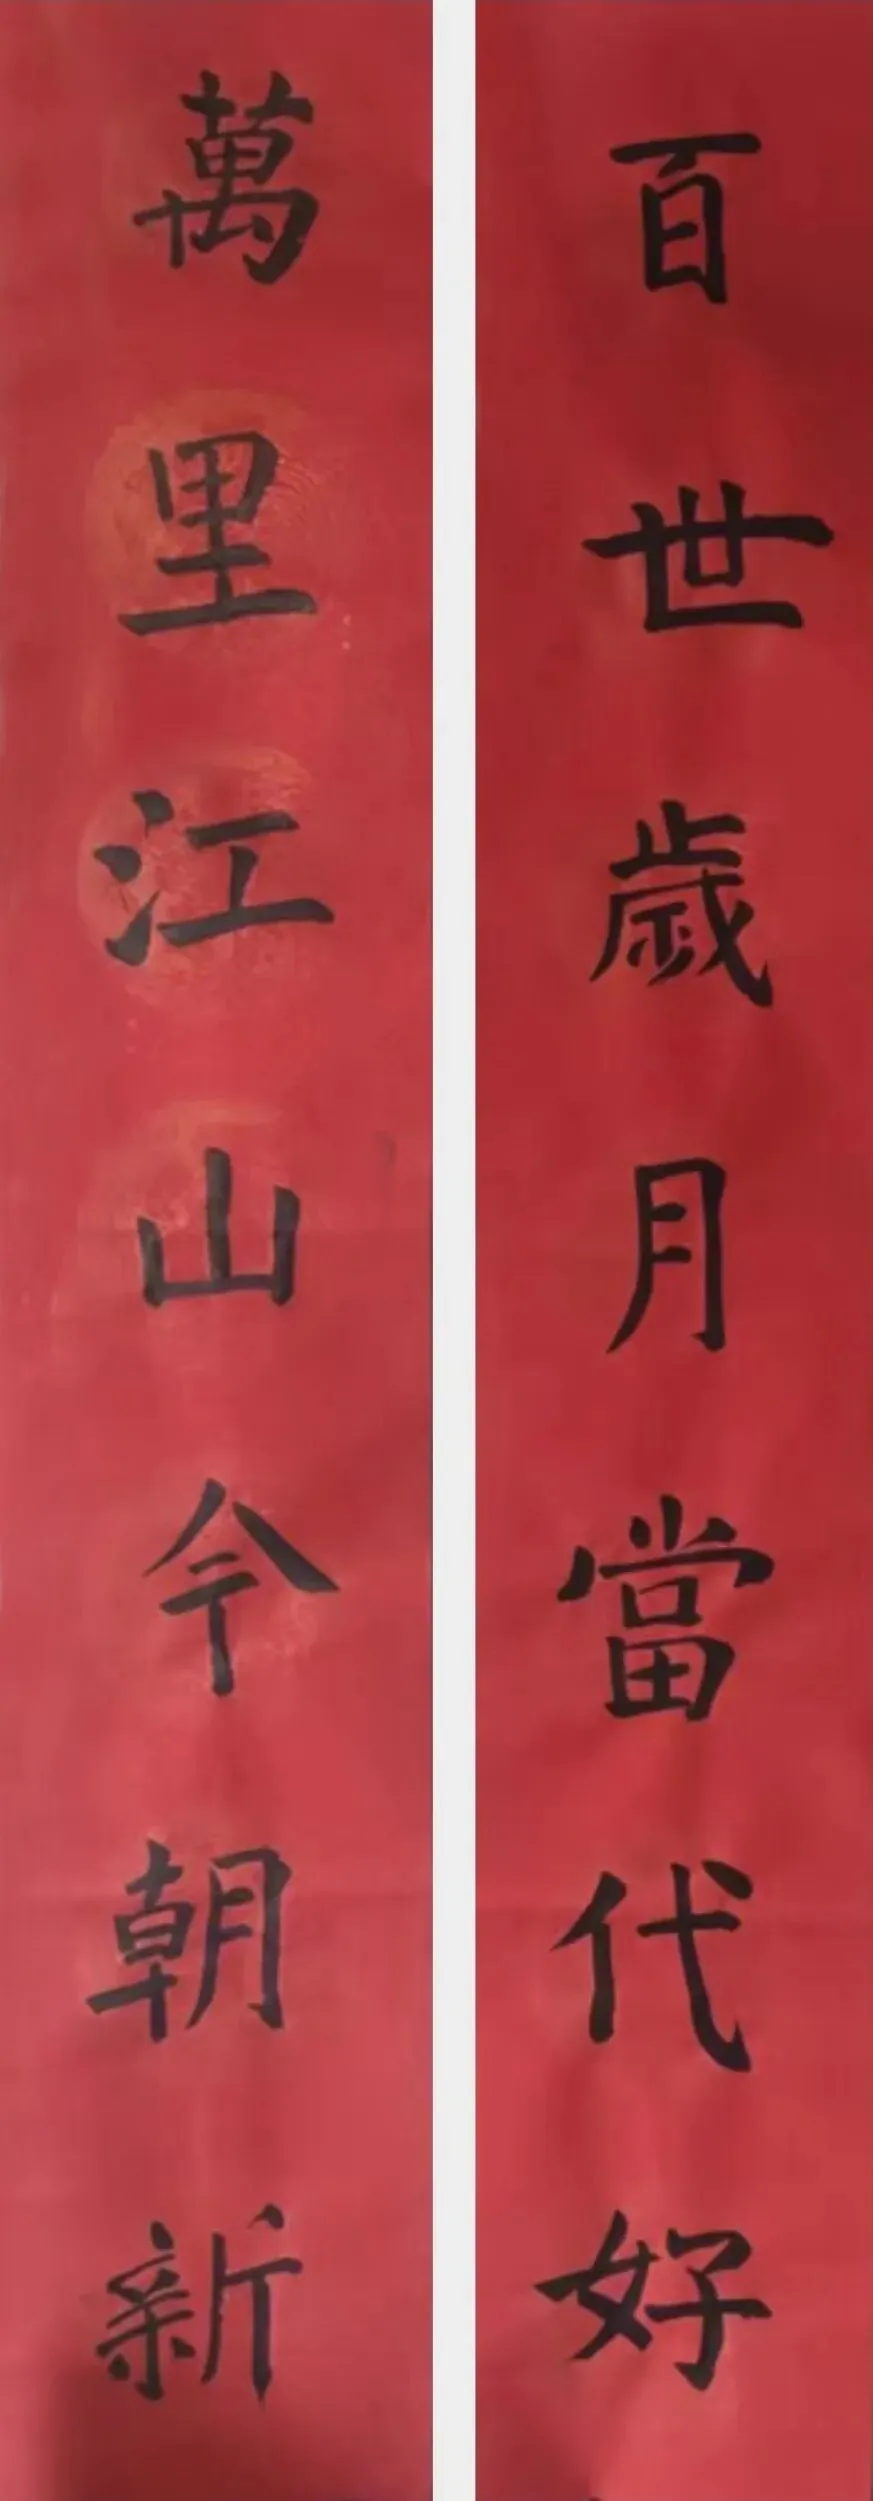 百世歲月當代好
萬里江山今朝新